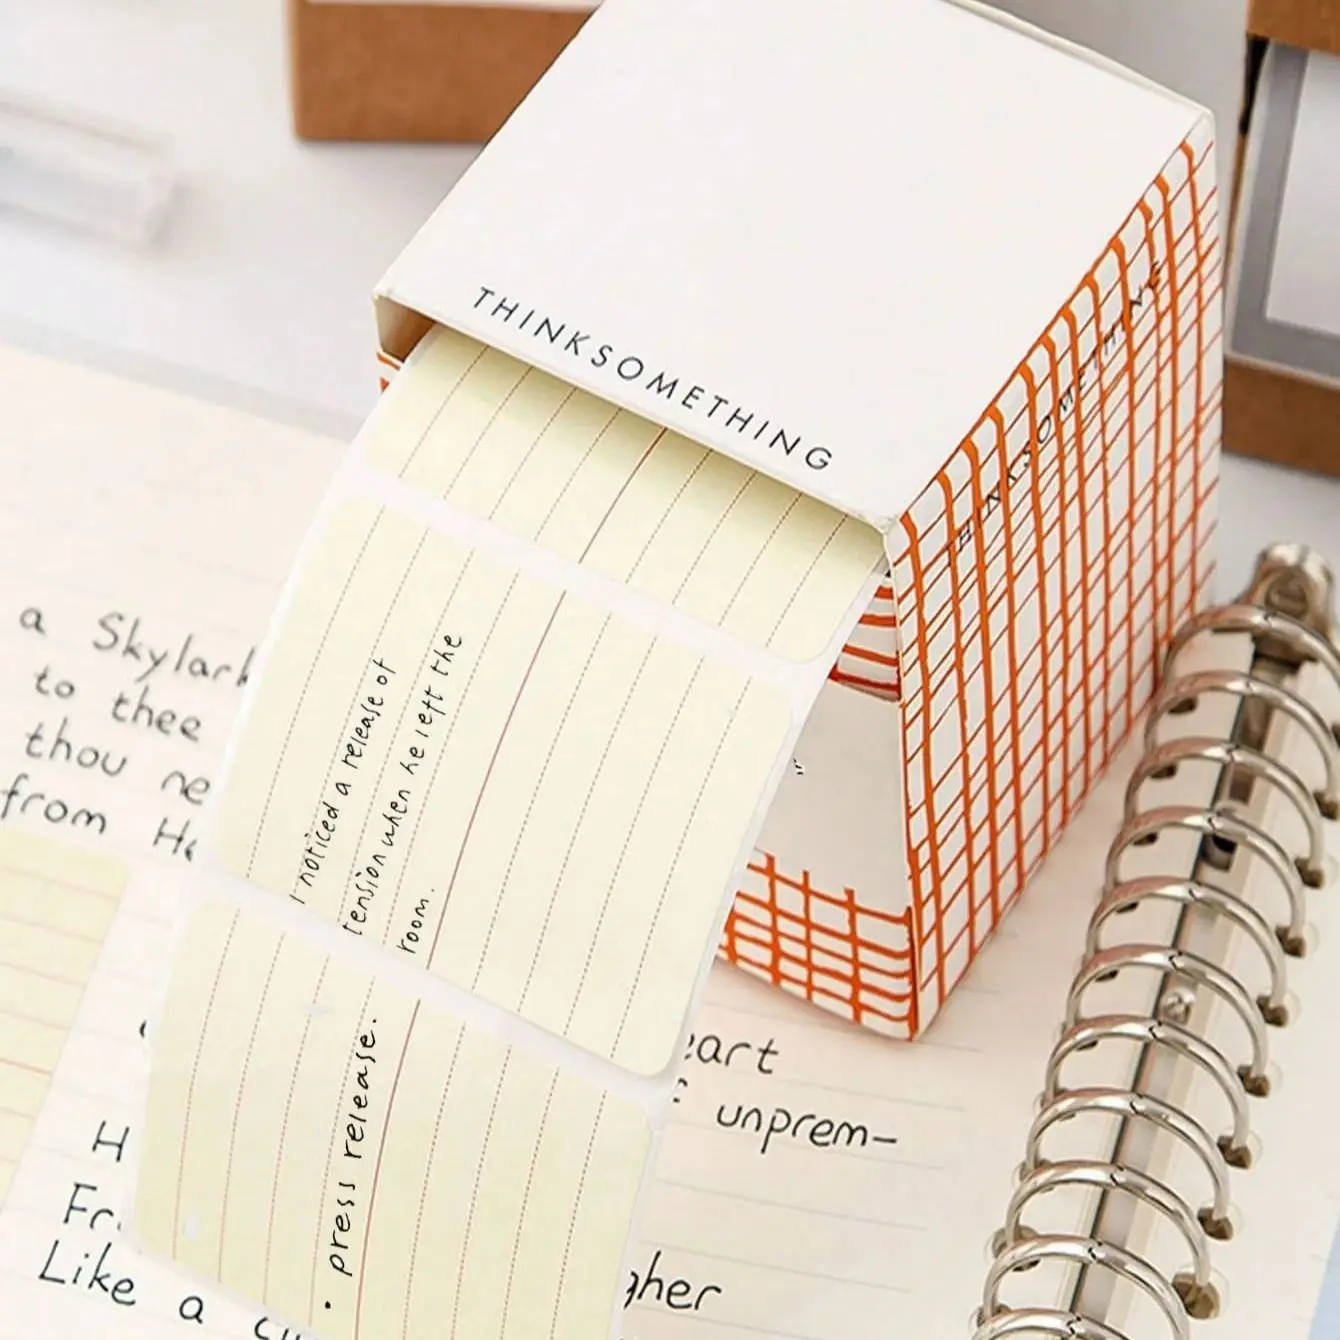 THINKSOMETHING
THINKSOMETHING
I noticed a release of
tension when he left the
room.
• press release.
a Skylark
to thee
thou
from
unprem-
Like a